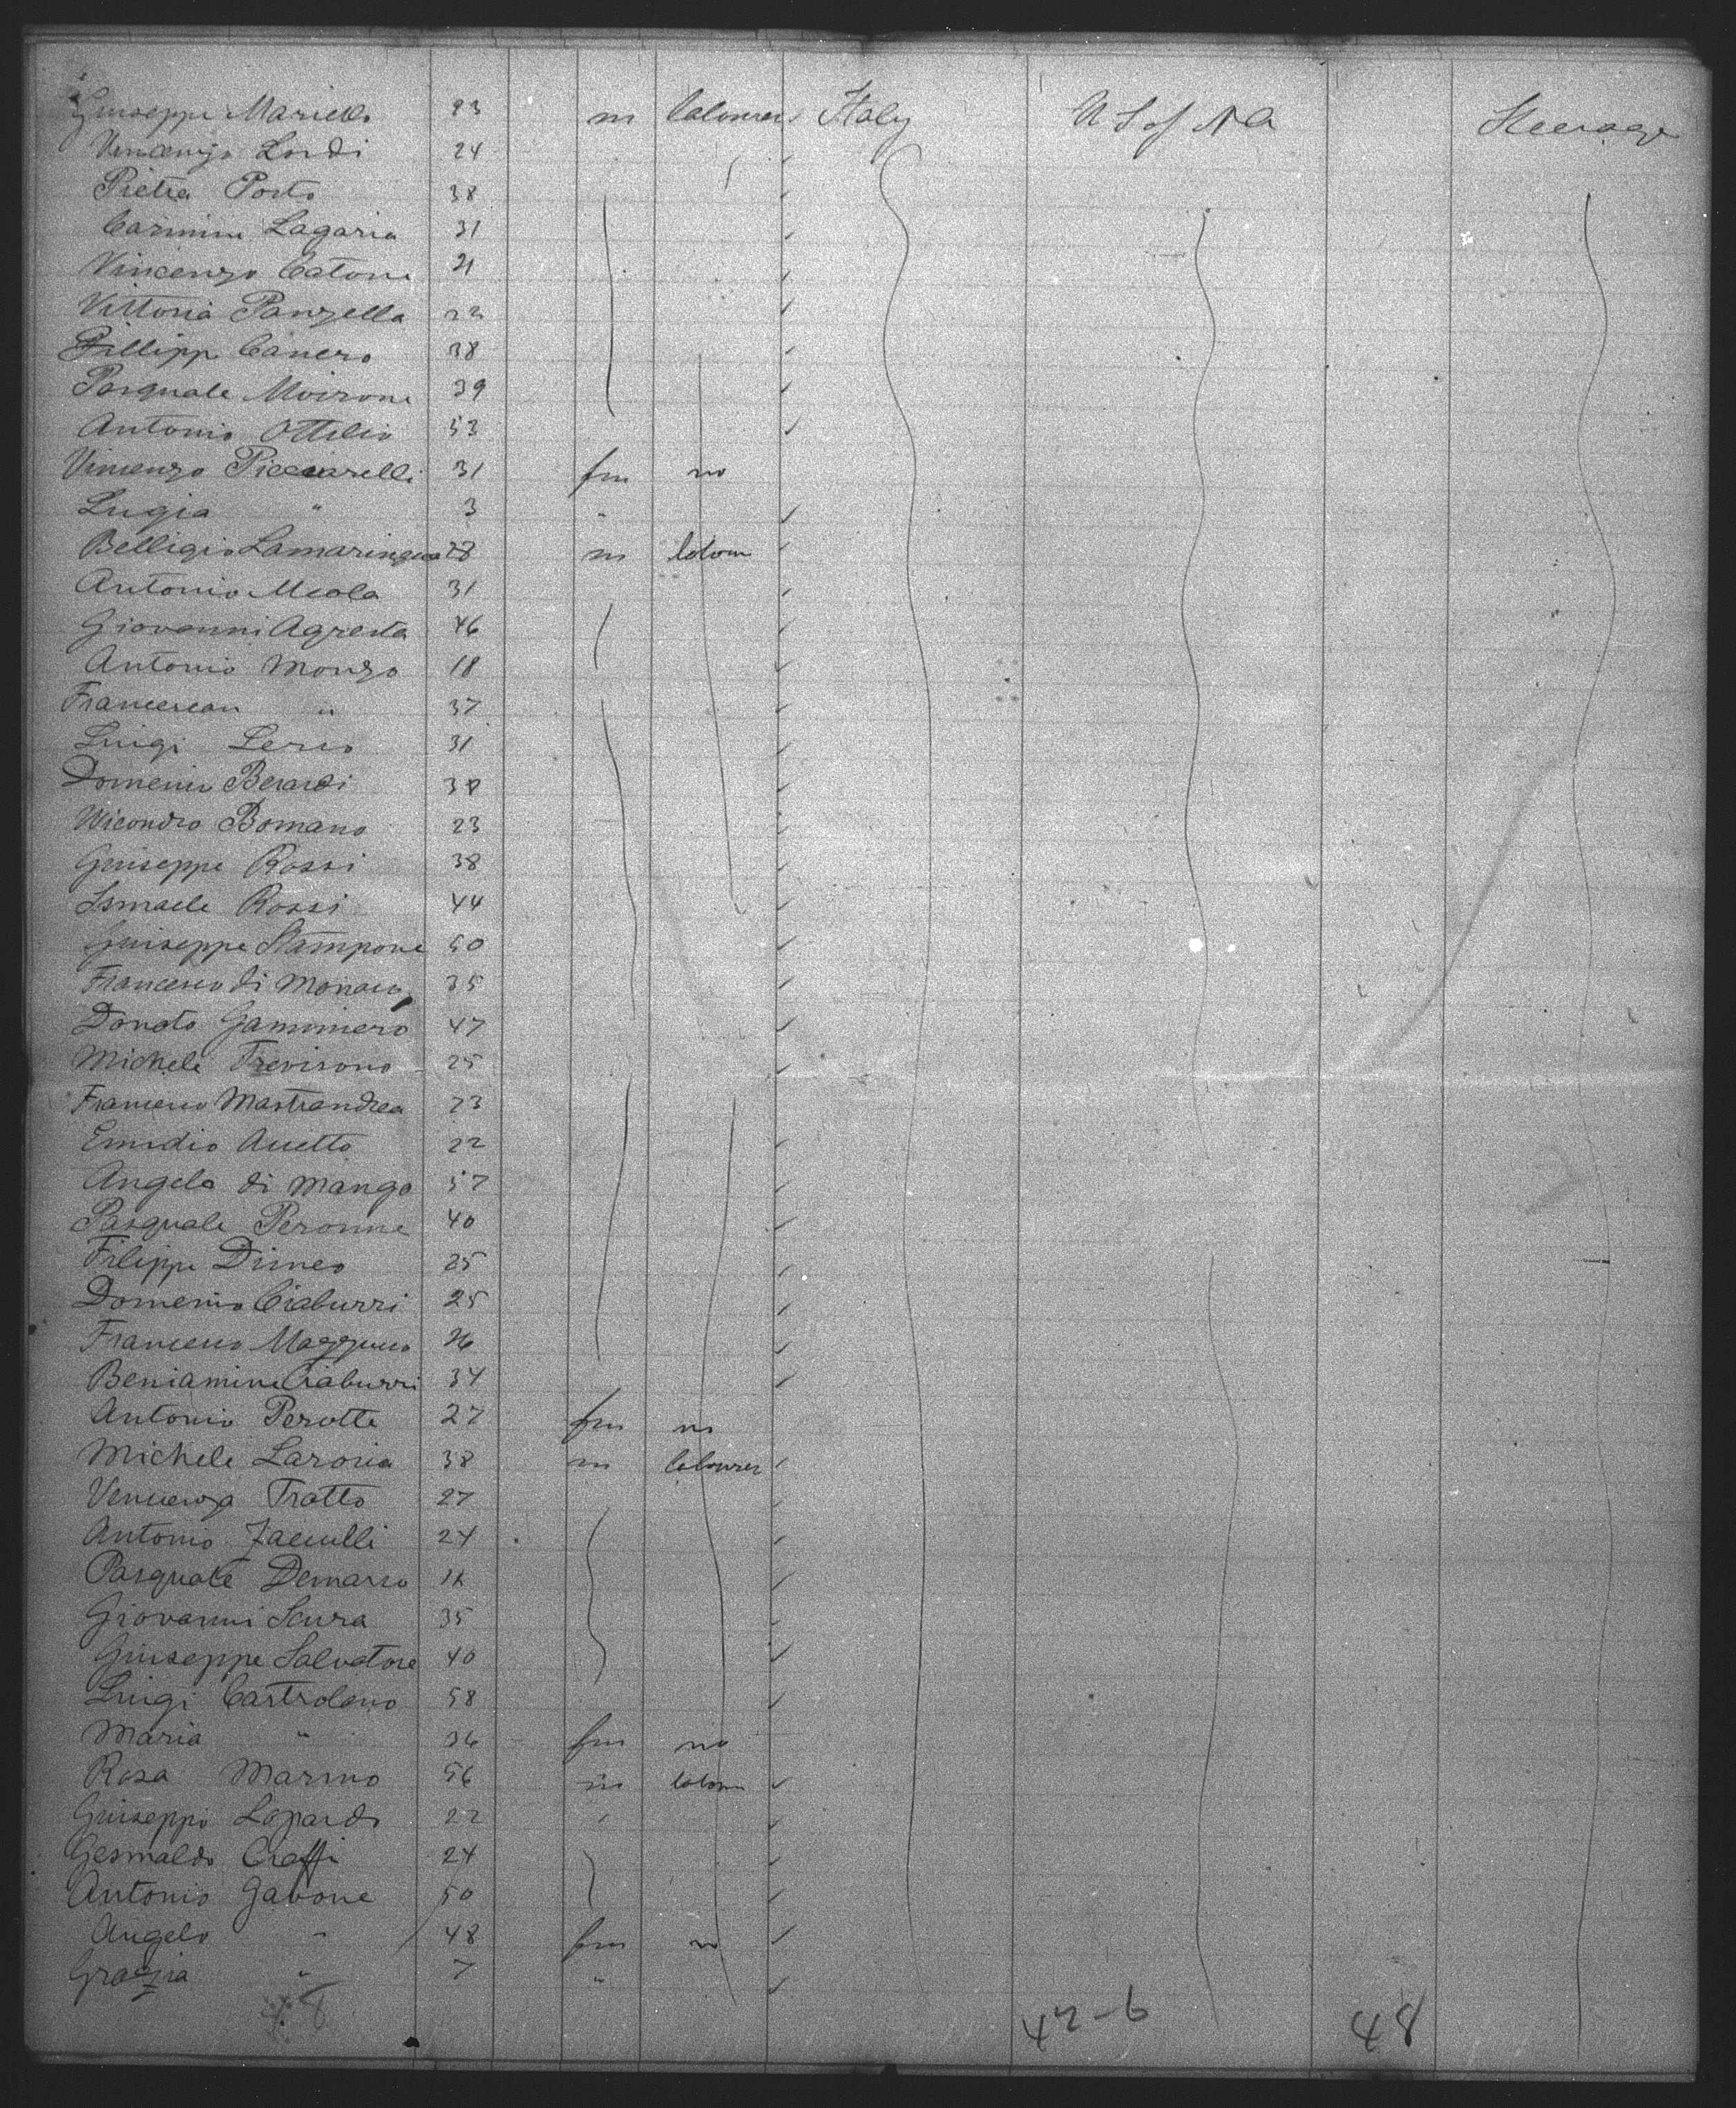 Guiseppe Mariello 23 m labourer Italy U S of N A Steerage
Vincenzo Lordi 24
Pietra Porto 38
Carmine Lagaria 31
Vincenzo Catone 21
Vittoria Panzella 22
Fillipp Canero 38
Pasquale Moirone 39
Antonio Ottilio 53
Vincenzo Picciarelli 31 fm no
Lugia " 3 "
Belligio 28 m labour
Antonio Meola 31
Giovanni Agresta 46
Antonio Monzo 18
" 37
Luigi 31
Berardi
Nicondro Bomano 23
Guiseppe Rossi 38
Ismaele Rossi 44
Guiseppe Stampone 50
Francesco di Monaco 35
Donato Gamminero 47
Michele Trevisono 25
Francesco Mastrandrea 23
Emidio Auetto 22
Angelo di Mango 57
Pasquale Peronne 40
Filippo Dimeo 25
Domenico Ciaburri 25
Francesco 26
Beniamino Ciaburri 34
Antonio Perotte 27 fm no
Michele Laroria 38 m labourer
Tratto 27
Antonio Jacculli 24
Pasquale Demarco
Giovanni Scura 35
Guiseppe Salvatore 40
Luigi Castrolano 58
Maria " 36 fm no
Rosa Marino 56 m labour
Guiseppi Lopardo 22
Gesmaldo Ciaffi 24
Antonio Gabone 50
Angelo " 48 fm no
Grazia " 7 "
48 42-6 48